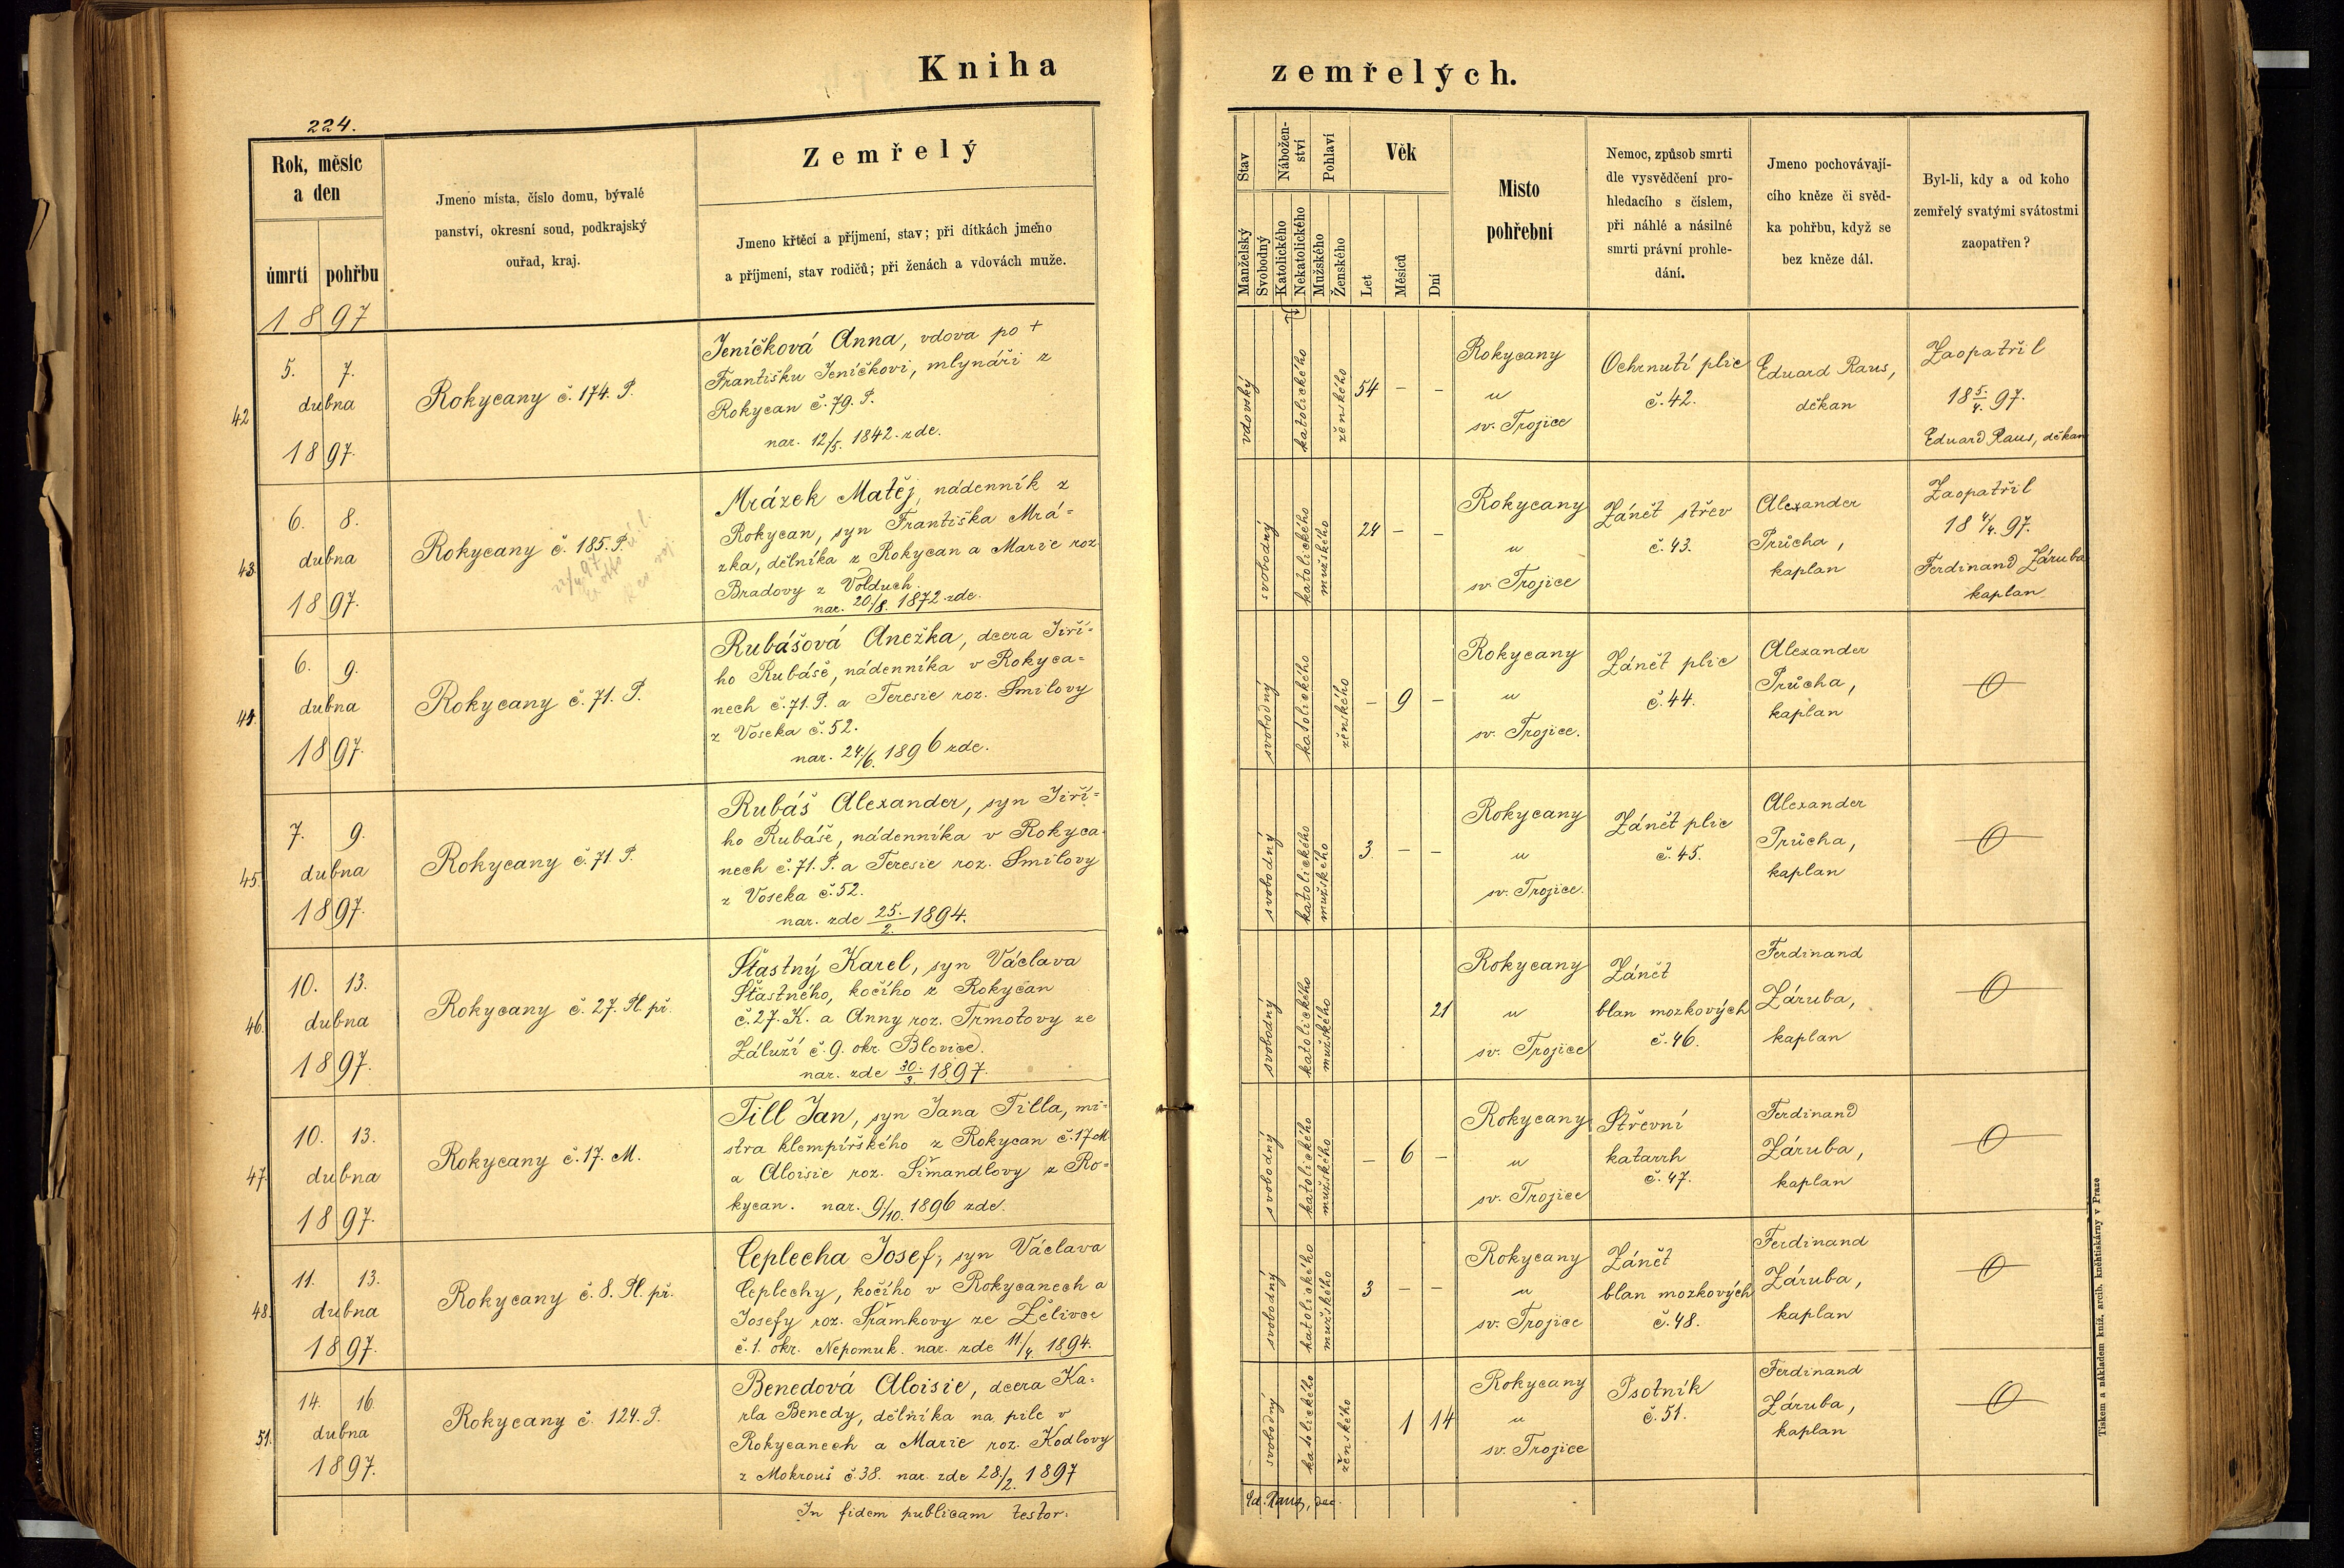 Kniha zemřelých.
224.
Rok, měsíc
a den
úmrtí pohřbu
Jmeno místa, číslo domu, bývalé
panství, okresní soud, podkrajský
ouřad, kraj.
Zemřelý
Jmeno křtěcí a příjmení, stav; při dítkách jmeno
a příjmení, stav rodičů; při ženách a vdovách muže.
Stav
Manželský
Svobodný
Nábožen-
ství
Katolického
Nekatolického
Pohlaví
Mužského
Ženského
Věk
Let
Měsíců
Dní
Misto
pohřební
Nemoc, způsob smrti
dle vysvědčení pro-
hledacího s číslem,
při náhlé a násilné
smrti právní prohle-
dání.
Jmeno pochovávají-
cího kněze či svěd-
ka pohřbu, když se
bez kněze dál.
Byl-li, kdy a od koho
zemřelý svatými svátostmi
zaopatřen?
1897
42
5. 7.
dubna
1897.
Rokycany č. 174. P.
Jeníčková Anna, vdova po +
Františku Jeníčkovi, mlynáři z
Rokycan č. 79. P.
nar. 12/5. 1842. zde.
vdovský
katolického
ženského
54 – –
Rokycany
u
sv. Trojice
Ochrnutí plic
č. 42.
Eduard Raus,
děkan
Zaopatřil
18 5./4. 97.
Eduard Raus, děkan
43.
6. 8.
dubna
1897.
Rokycany č. 185. P.
Mrázek Matěj, nádenník z
Rokycan, syn Františka Mrá=
zka, dělníka z Rokycan a Marie roz.
Bradovy z Volduch.
nar. 20/8. 1872. zde.
svobodný
katolického
mužského
24 – –
Rokycany
u
sv. Trojice
Zánět střev
č. 43.
Alexander
Průcha,
kaplan
Zaopatřil
18 4/4. 97.
Ferdinand Záruba
kaplan
44.
6. 9.
dubna
1897.
Rokycany č. 71. P.
Rubášová Anežka, dcera Jiří=
ho Rubáše, nádenníka v Rokyca=
nech č. 71. P. a Teresie roz. Smilovy
z Voseka č. 52.
nar. 24./6. 1896 zde.
svobodný
katolického
ženského
– 9 –
Rokycany
u
sv. Trojice.
Zánět plic
č. 44.
Alexander
Průcha,
kaplan
45.
7. 9.
dubna
1897.
Rokycany č. 71. P.
Rubáš Alexander, syn Jiří=
ho Rubáše, nádenníka v Rokyca-
nech č. 71. P. a Teresie roz. Smilovy
z Voseka č. 52.
nar. zde 25./2. 1894.
svobodný
katolického
mužského
3. – –
Rokycany
u
sv. Trojice.
Zánět plic
č. 45.
Alexander
Průcha,
kaplan
46.
10. 13.
dubna
1897.
Rokycany č. 27. Pl. př.
Šťastný Karel, syn Václava
Šťastného, kočího z Rokycan
č. 27. K. a Anny roz. Trmotovy ze
Záluží č. 9. okr. Blovice.
nar. zde 30./3. 1897.
svobodný
katolického
mužského
21
Rokycany
u
sv. Trojice
Zánět
blan mozkových
č. 46.
Ferdinand
Záruba,
kaplan
47.
10. 13.
dubna
1897.
Rokycany č. 17. M.
Till Jan, syn Jana Tilla, mi=
stra klempířského z Rokycan č. 17 M.
a Aloisie roz. Šimandlovy z Ro=
kycan. nar. 9/10. 1896 zde.
svobodný
katolického
mužského
– 6 –
Rokycany
u
sv. Trojice
Střevní
katarrh
č. 47.
Ferdinand
Záruba,
kaplan
48.
11. 13.
dubna
1897.
Rokycany č. 8. Pl. př.
Ceplecha Josef, syn Václava
Ceplechy, kočího v Rokycanech a
Josefy roz. Šrámkovy ze Želivce
č. 1. okr. Nepomuk. nar. zde 11/4. 1894.
svobodný
katolického
mužského
3 – –
Rokycany
u
sv. Trojice
Zánět
blan mozkových
č. 48.
Ferdinand
Záruba,
kaplan
51.
14. 16.
dubna
1897.
Rokycany č. 124. P.
Benedová Aloisie, dcera Ka=
rla Benedy, dělníka na pile v
Rokycanech a Marie roz. Kodlovy
z Mokrouš č. 38. nar. zde 28./2. 1897
svobodný
katolického
ženského
1 14
Rokycany
u
sv. Trojice
Psotník
č. 51.
Ferdinand
Záruba,
kaplan
In fidem publicam testor:
Ed. Raus, dec.
Tiskem a nákladem kníž. arcib. kněhtiskárny v Praze